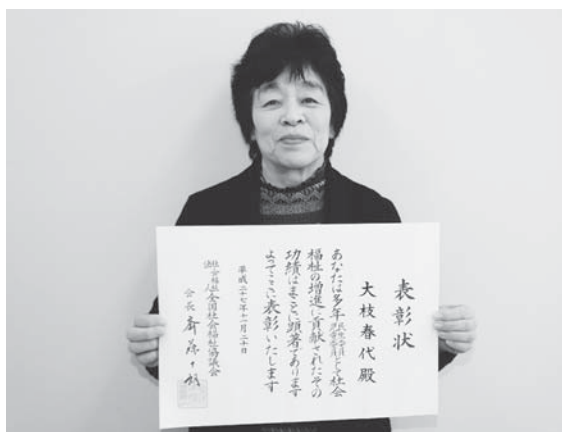 表彰状
大枝春代殿
あなたは多年民生委員児童委員として社会
福祉の増進に貢献されたその
功績はまことに顕著であります
よってここに表彰いたします
平成二十七年十一月二十日
社会福祉法人全国社会福祉協議会
会長 斎藤十朗